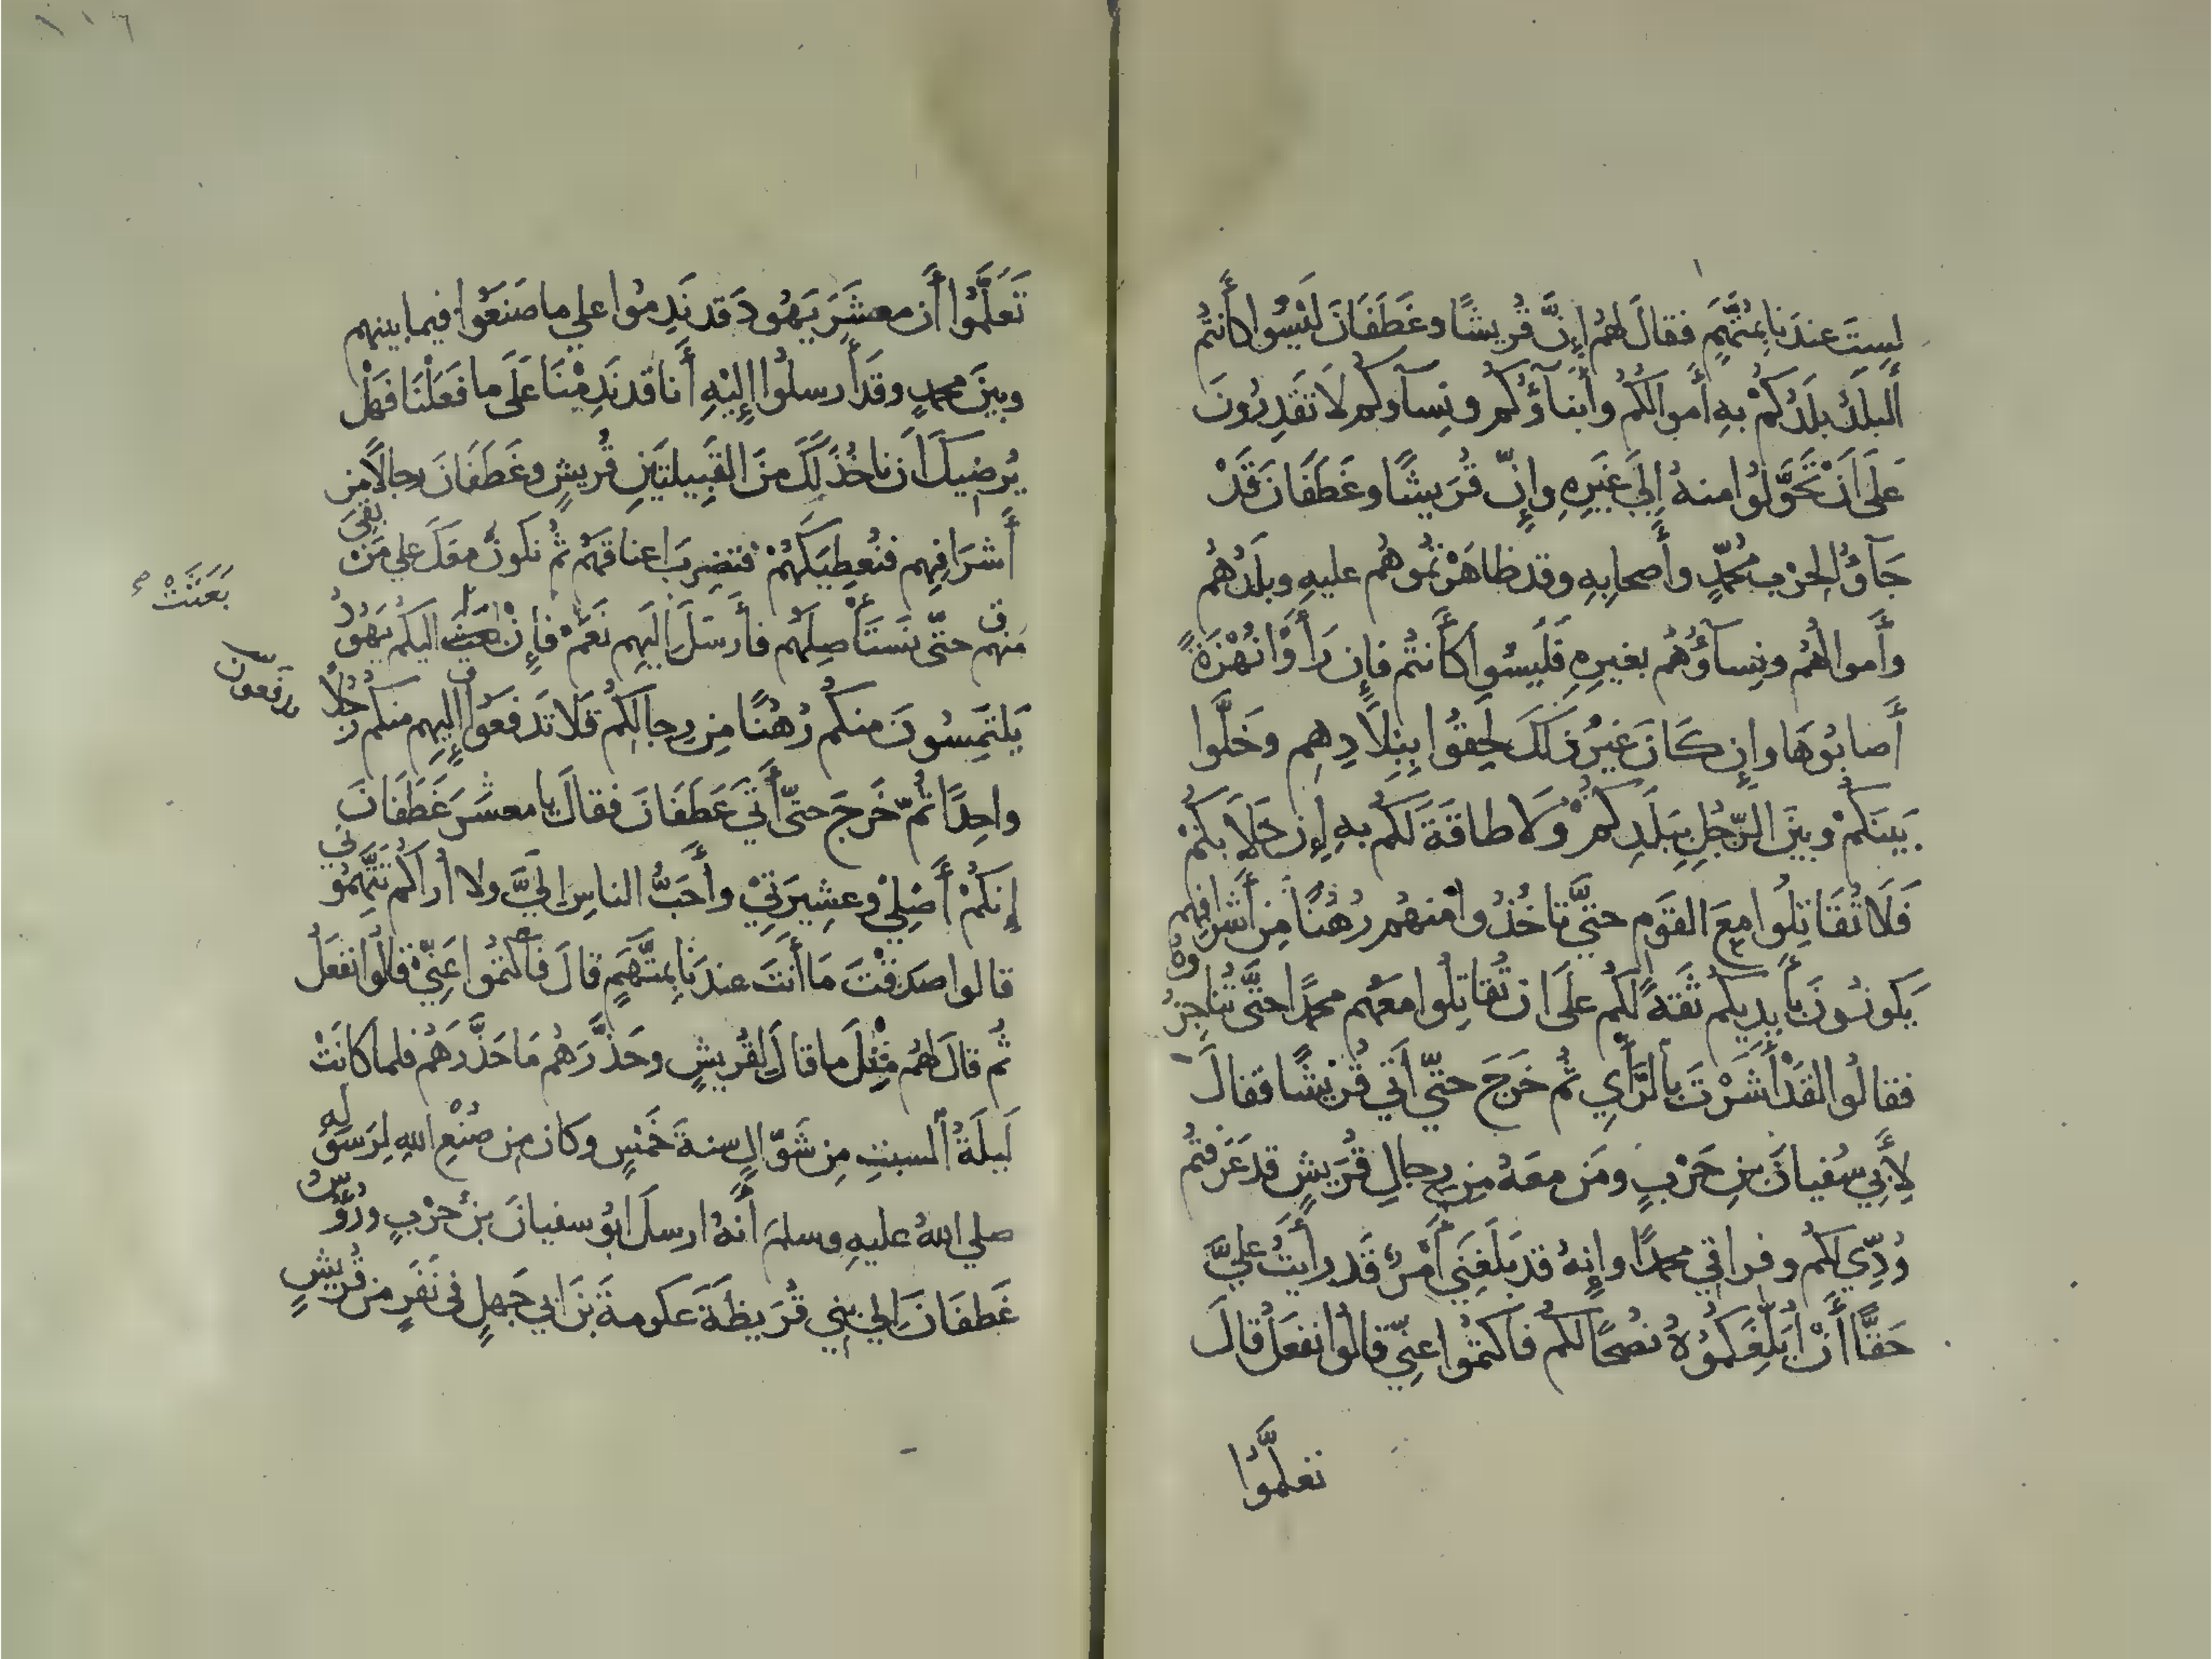 لستَ عندَنا بِمُتَّهَمٍ فقالَ لهُم إِنَّ قُريشًا وغَطَفَانَ لَيْسُوا كأَنتُم
أَلبلَدُ بلَدُكُمْ بهِ أَموالُكُم وأَبنَآؤُكُم ونِسآوكُم لَا تَقدِرُونَ
عَلَى أَنْ تَحَوَّلُوا منهُ إِلَى غَيرِهِ وإِنّ قُرَيشًا وغَطَفَانَ قَدْ
جَآؤُا لِحَربِ مُحمّدٍ وأَصحابِهِ وقد ظاهَرْتُموهُم عليهِ وبلَدُهُم
وأَموالُهُم ونِسآؤُهُم بغيرِهِ فَلَيسُوا كأَنتُم فإِن رَأَوْا نُهْزَةً
أَصابُوهَا وإِن كَانَ غيرُ ذلكَ لَحِقُوا بِبِلَادِهِم وخَلَّوا
بَينَكُمْ وبينَ الرّجُلِ بِبَلَدِكُمْ وَلا طاقَةَ لَكُم بهِ إِن خَلَا بكُمْ
فَلَا تُقَاتِلُوا معَ القَومِ حتَّى تاخُذُوا منهُم رُهُنًا مِن أَشرافِهم
يَكونُونَ بأَيدِيكُم ثقةً لكُم علَى ان تُقاتِلُوا معَهُم محمدًا حتَّى تُناجِزُوهُ
فقالُوا لقَدْ أَشَرْتَ بالرَّأْيِ ثُم خَرَجَ حتّى أَتى قُرَيْشًا فقالَ
لِأَبي سُفيانَ بنِ حَرْبٍ ومَن معَهُ مِن رِجالِ قُرَيشٍ قد عَرَفتُم
وُدِّي لكُم وفراقي محمدًا وإِنهُ قد بَلَغَنِي أَمرٌ قَد رأَيتُ عليَّ
حَقًّا أَنْ أُبَلِّغَكُمُوهُ نُصْحًا لكُم فاكتمُوا عنِّي قالُوا نفعَلُ قالَ
تعلَّمُوا
١١٦
تَعَلَّمُوا أَن معشَرَ يَهُودَ قد نَدِمُوا على ما صَنَعُوا فيما بينهم
وبينَ محمدٍ وقد أَرسلُوا إِليْهِ أَنا قد نَدِمْنَا عَلَى ما فعَلْنَا فهَلْ
يُرضِيكَ أَن ناخُذَ لَكَ منَ القَبِيلتَينِ قُريشٍ وغَطَفَانَ رجالًا مِن
أَشرَافِهِم فنُعطِيَكَهُمْ فتضرِبَ اعناقَهُم ثُم نكونُ معَكَ على مَنْ بقِيَ
منهم حتّى نَستَأْصِلَهُم فأَرسَلَ إِليهِم نَعَمْ فإِنْ بعثَتْ اليكُم يَهُودُ
يَلتَمِسُونَ منكُم رُهُنًا مِن رِجالِكُم فَلا تَدفعُوا إِليهِم منكُم رَجُلًا
بَعَثَتْ
تدفعون
واحِدًا ثُمّ خَرَجَ حتّى أَتَى غَطَفَانَ فقالَ يا معشَرَ غَطَفانَ
إِنكُمْ أَصْلِي وعشِيرَتِي وأَحَبُّ الناسِ إِليَّ ولا أُراكُم تَتَّهِمُونِي
قالوا صدَقْتَ مَا أَنتَ عندَنا بِمتَّهَمٍ قالَ فاكتمُوا عَنِّي قالُوا نفعَلُ
ثُم قالَ لهُم مِثْلَ ما قالَ لِقُريشٍ وحَذَّرَهُم مَا حَذَّرَهُم فلما كانَتْ
لَيلَةُ السبتِ مِن شَوّالٍ سنةَ خَمسٍ وكان مِن صُنْعِ اللهِ لِرَسولِهِ
صلى اللهُ عليهِ وسلم أَنهُ ارسلَ ابُو سفيانَ بنُ حَرْبٍ ورُؤُسُ
غَطفَانَ إِلى بني قُرَيظَةَ عكرمةَ بنَ ابي جَهلٍ في نَفَرٍ من قُريشٍ